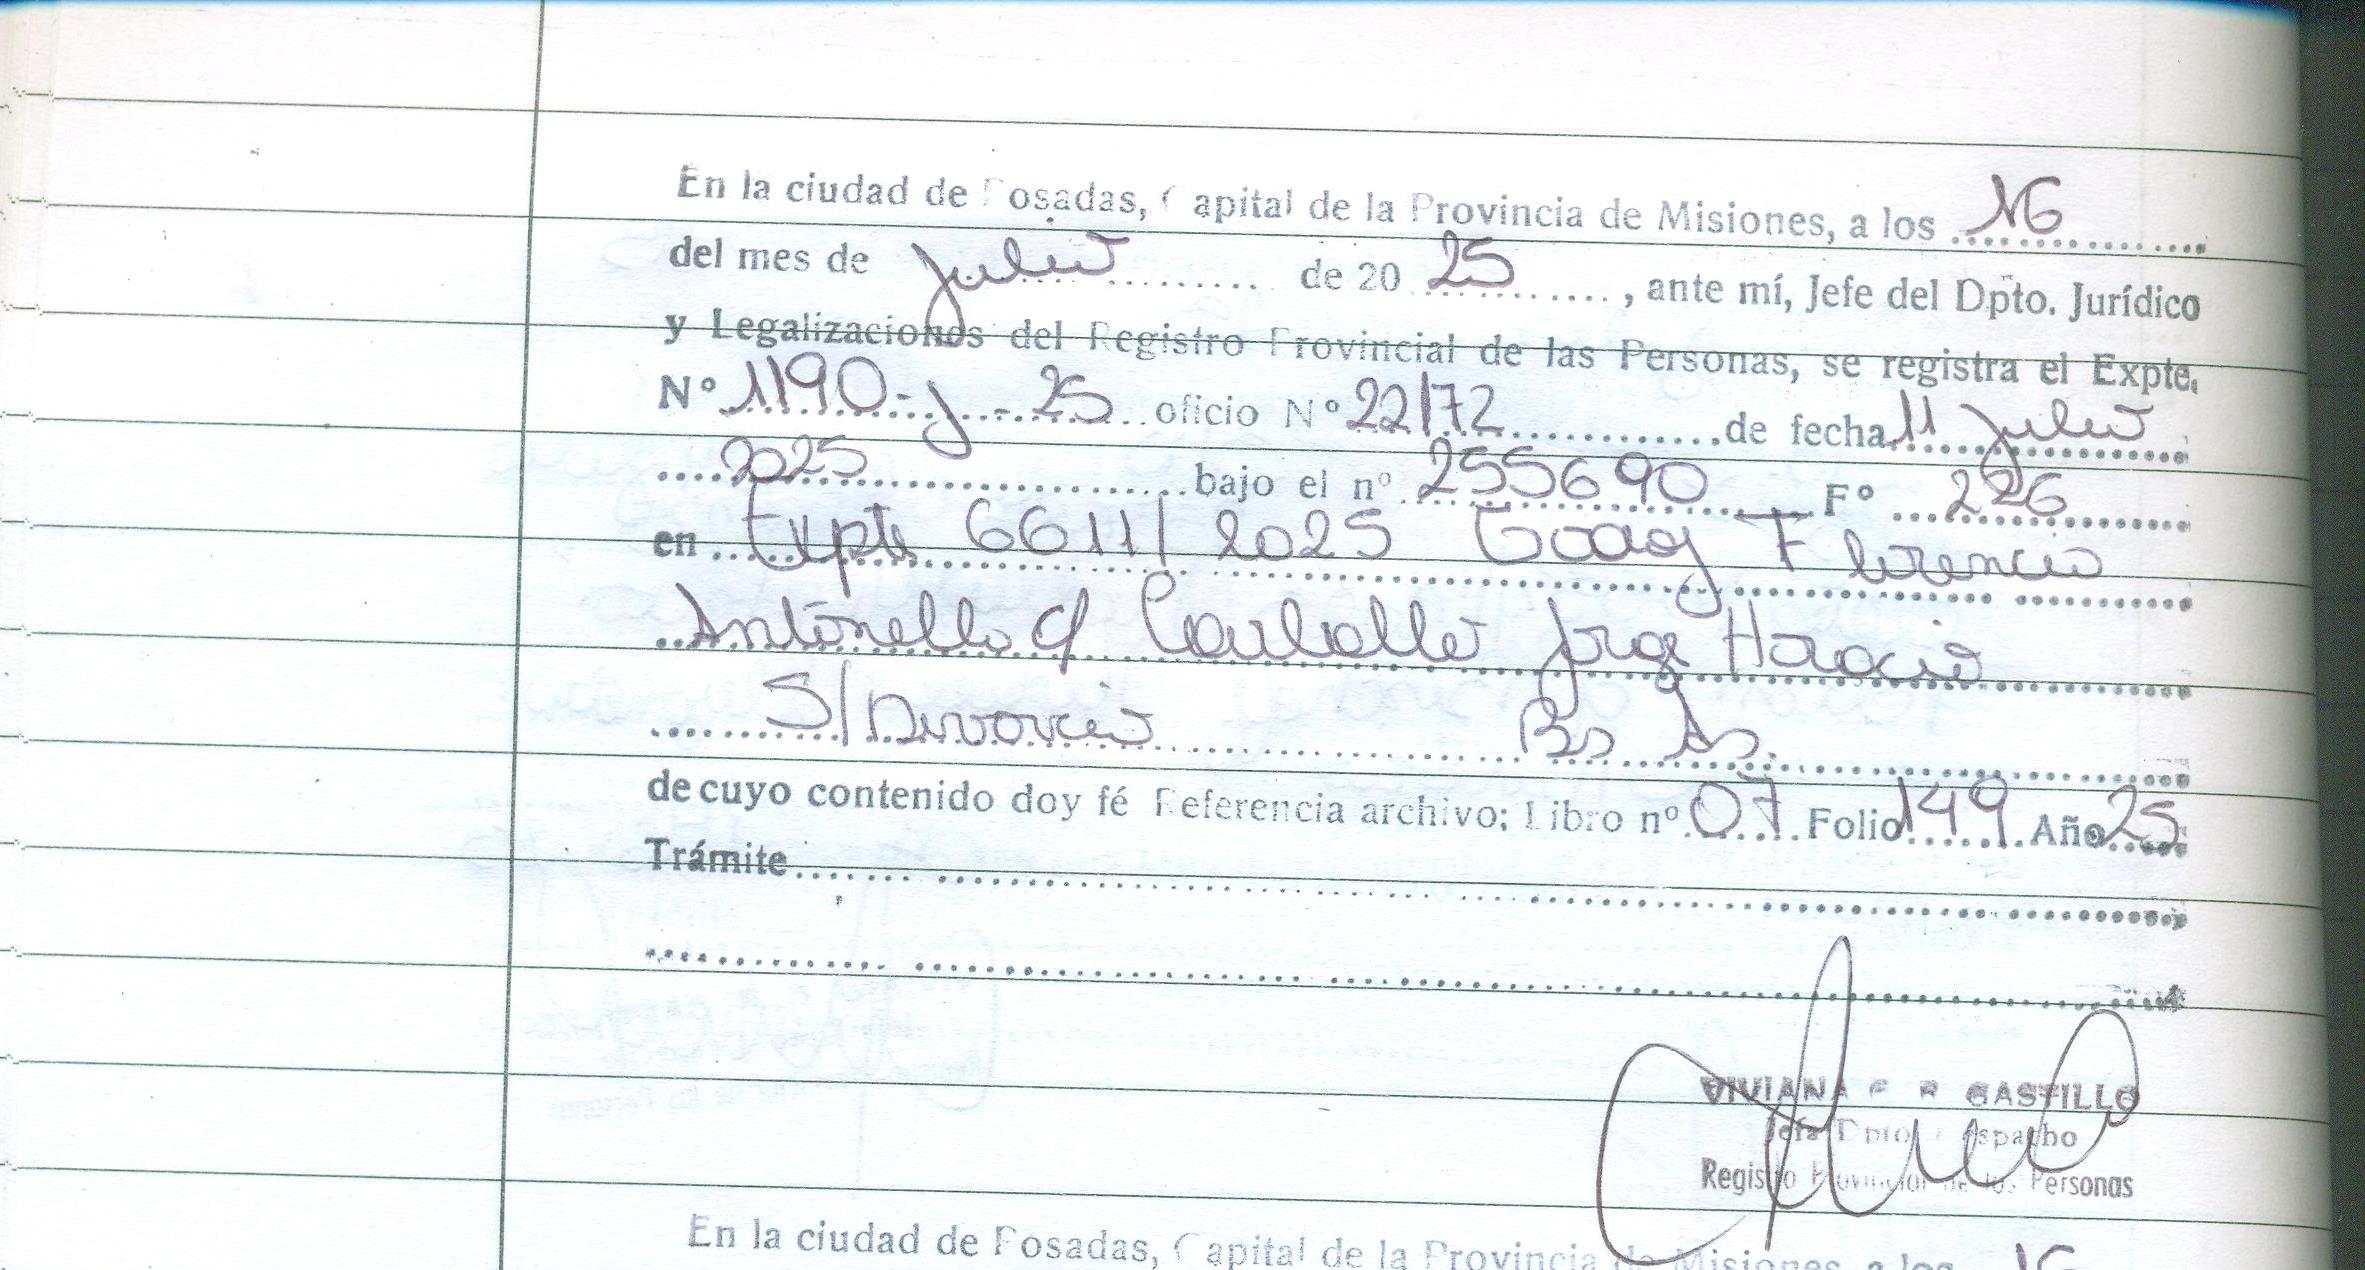 En la ciudad de Posadas, Capital de la Provincia de Misiones, a los 16
del mes de Julio de 20 25, ante mí, Jefe del Dpto. Jurídico
y Legalizaciones del Registro Provincial de las Personas, se registra el Expte.
Nº 1190-J-25 oficio Nº 22172 de fecha 11 Julio
2025 bajo el nº 255690 Fº 226
en Expte 6611/2025 Florencia
Antonella c/ Carballo Jorge Horacio
S/ Divorcio Bs As.
de cuyo contenido doy fé Referencia archivo; Libro nº 07 Folio 149 Año 25
Trámite
VIVIANA CASTILLO
Jefa Dpto Despacho
Registro Provincial de las Personas
En la ciudad de Posadas, Capital de la Provincia de Misiones, a los 16